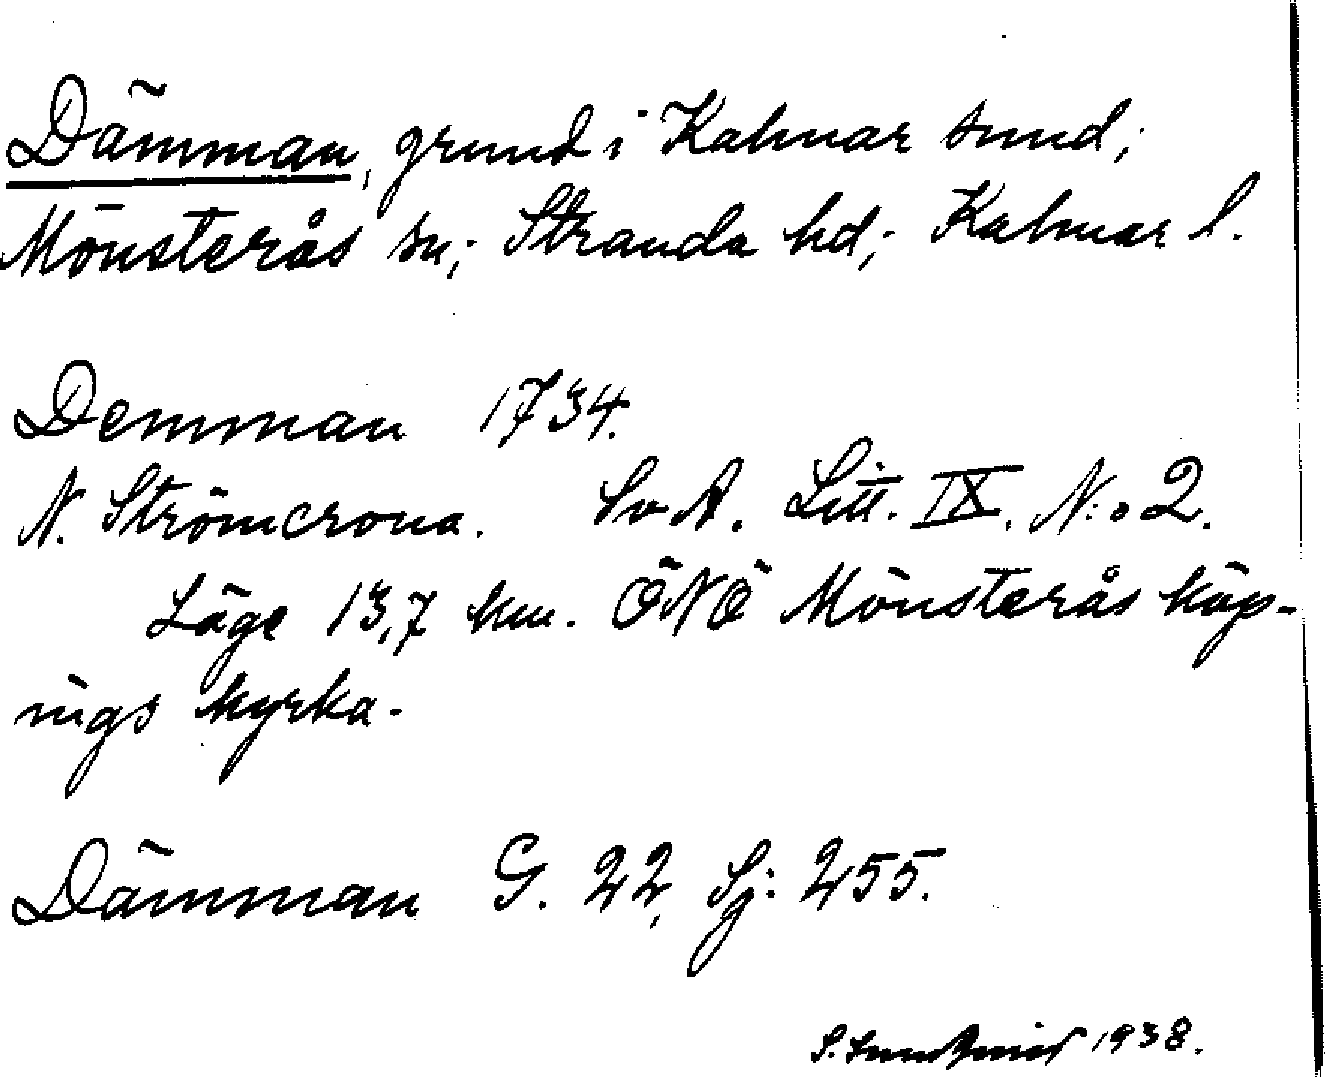 Dämman, grund i Kalmar sund;
Mönsterås sn; Stranda hd; Kalmar l.
Demman 1734.
N. Strömcrona. Sv A. Litt. IX. N:o 2.
Läge 13,7 km. ÖNÖ Mönsterås köp-
ings kyrka.
Dämman G. 22, Sj: 255.
S. 1938.